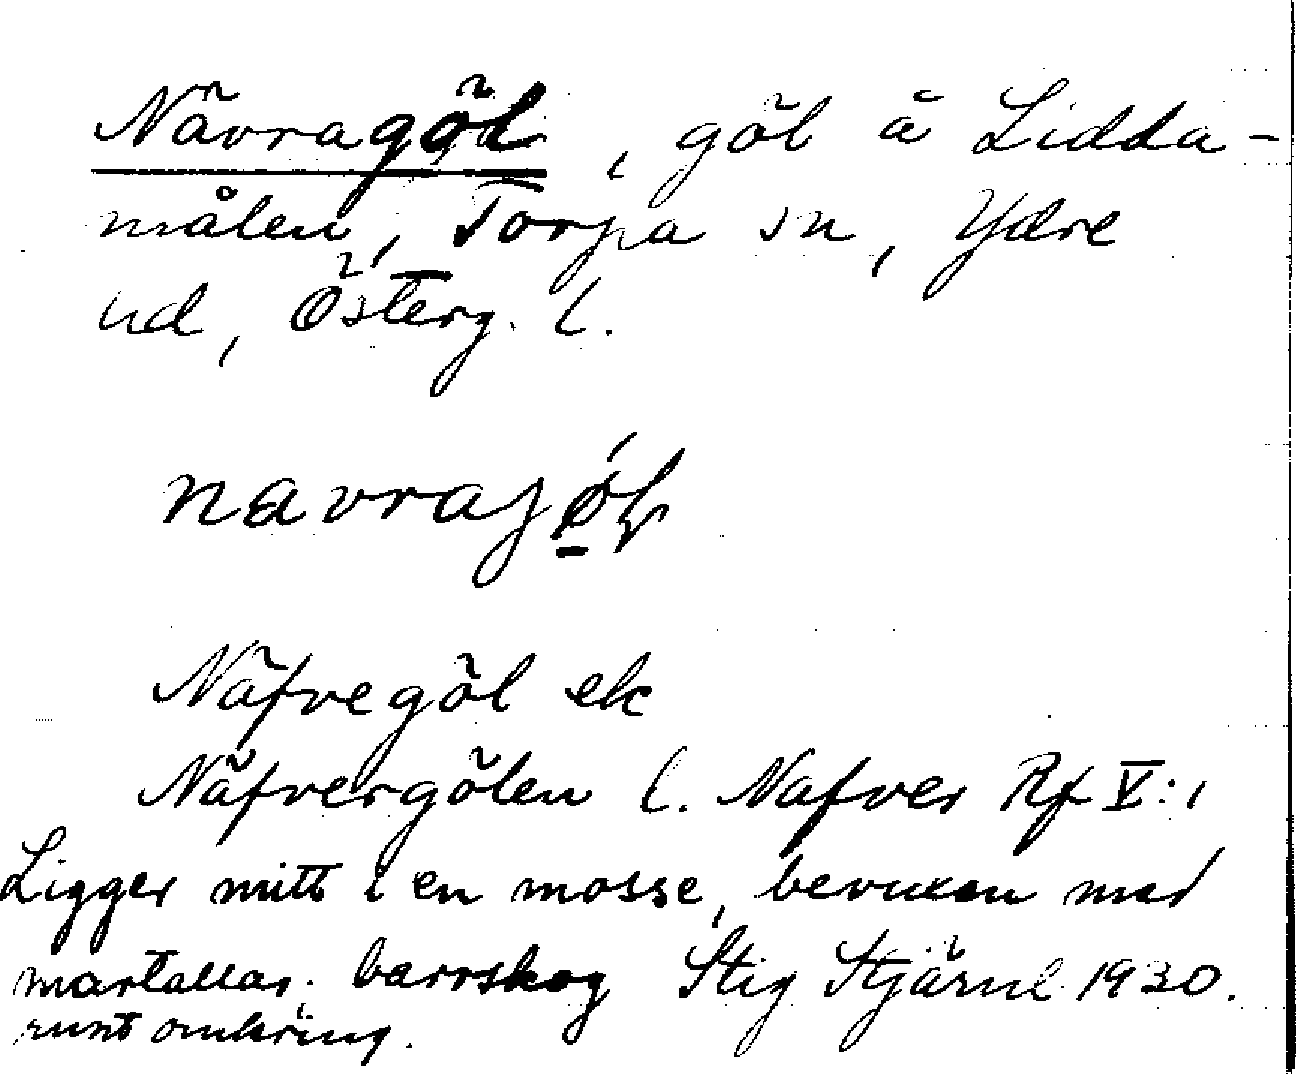 Nävragöl, göl å Lidda-
målen, Torpa sn, Ydre
hd, Österg. l.
navrajöl
Näfvegöl ek
Näfvergölen l. Nafver Rf V:1
Ligger mitt i en mosse, bevuxen med
martallar. barrskog Stig Stjärnl 1930.
runt omkring.